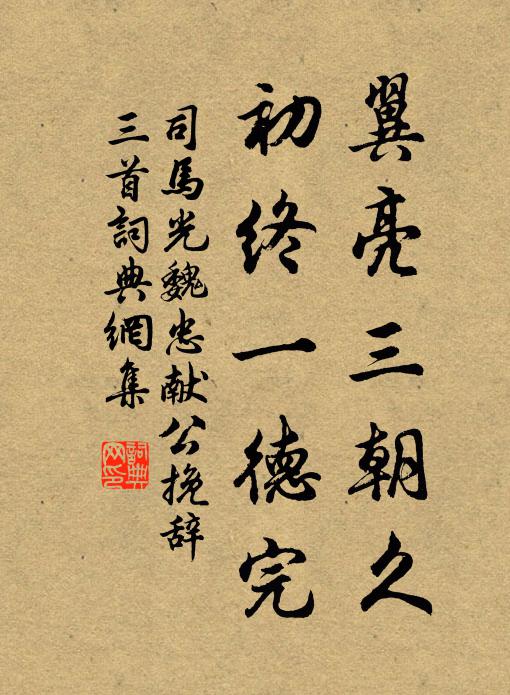 翼亮三朝久
初终一德完
司馬光魏忠献公挽辞
三首詞典網集
詞典網印